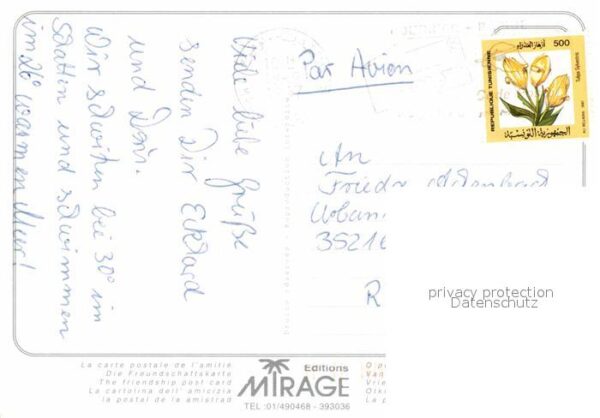 Viele liebe Grüße
senden Dir Eckhard
und Doris.
Wir schwitzen bei 30° im
Schatten und schwimmen
im 26° warmen Meer!
Par Avion
REPUBLIQUE TUNISIENNE
أزهار
500
Tulipa
الجمهورية التونسية
An
Frieda
Urban
35216
R
privacy protection
Datenschutz
La carte postale de l'amitie
Die Freundschaftskarte
The friendship post card
La cartolina dell' amicizia
la postal de la amistrad
Editions
MIRAGE
TEL :01/490468 - 393036